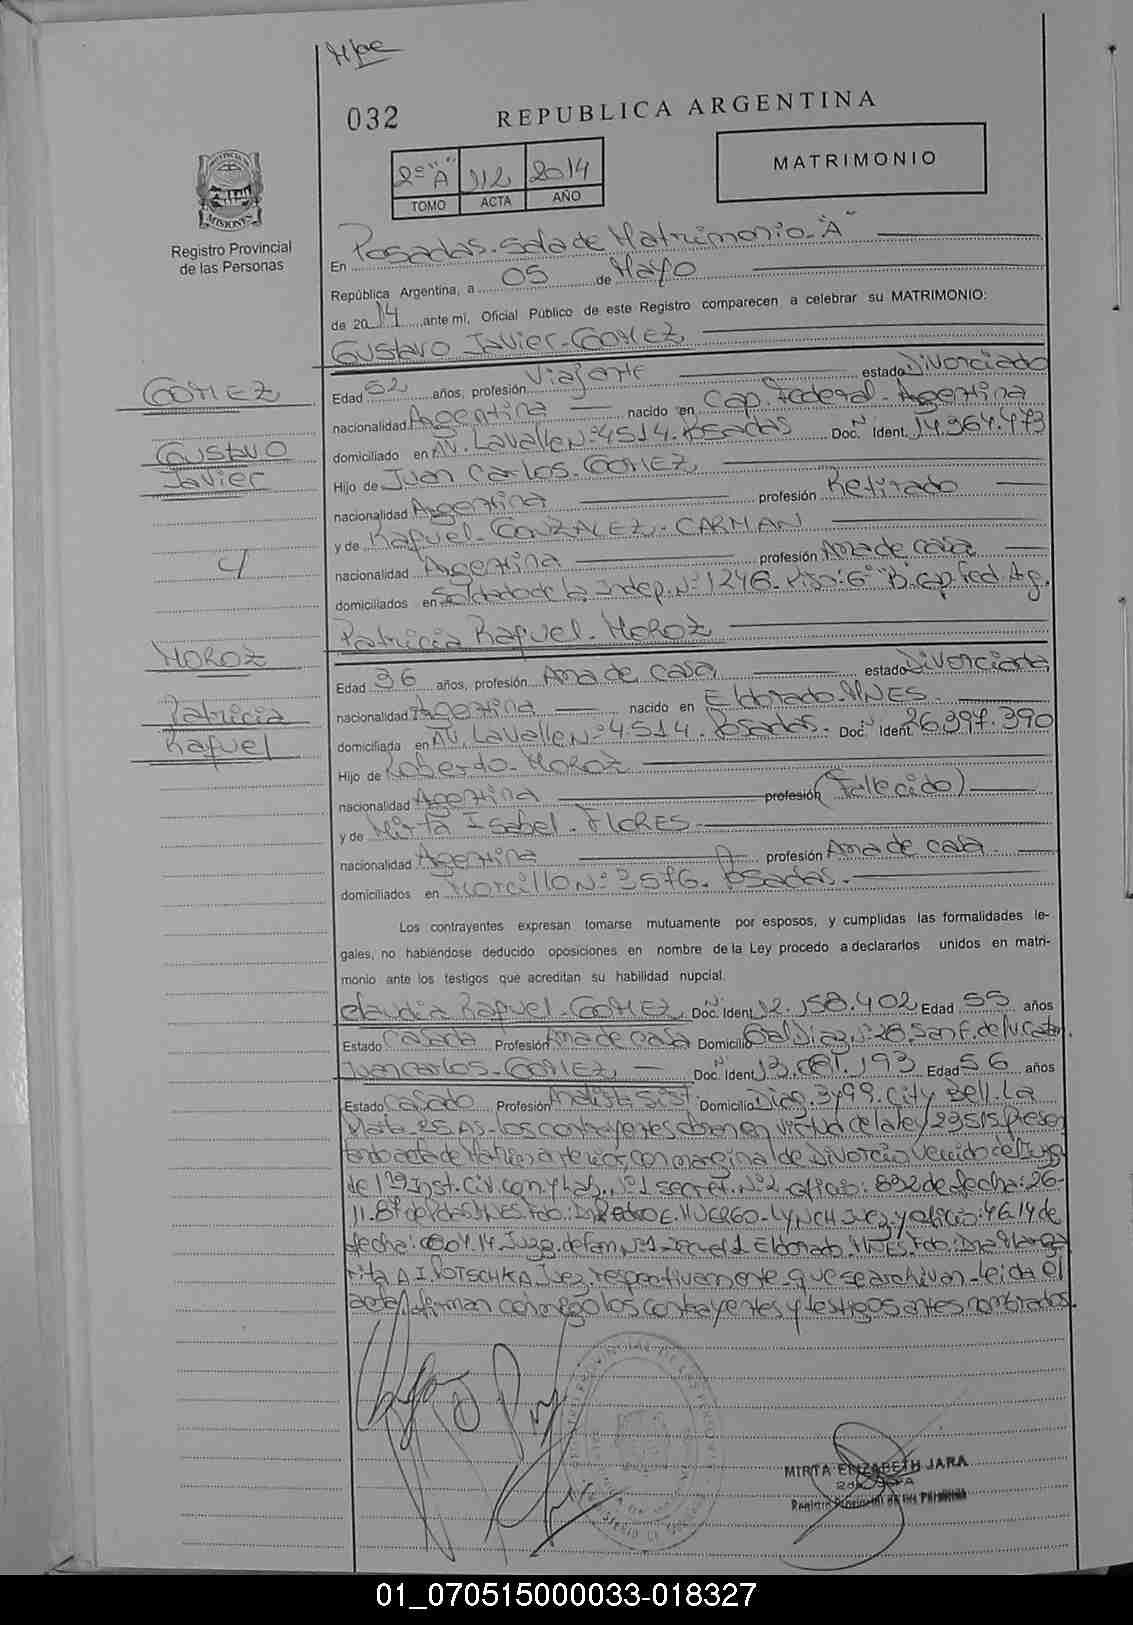 032
REPUBLICA ARGENTINA
MATRIMONIO
2º "A" 112 2014
TOMO ACTA AÑO
PROVINCIA DE
MISIONES
Registro Provincial
de las Personas
En Posadas - Sala de Matrimonio - "A"
República Argentina, a 05 de Mayo
de 2014, ante mí, Oficial Público de este Registro comparecen a celebrar su MATRIMONIO:
Gustavo Javier - GOMEZ
GOMEZ
Gustavo
Javier
Y
MOROZ
Patricia
Raquel
Edad 52 años, profesión Viajante estado Divorciado
nacionalidad Argentina nacido en Cap. Federal - Argentina
domiciliado en AV. Lavalle Nº 4514. Posadas Doc. N Ident. 14.964.473
Hijo de Juan Carlos - GOMEZ
nacionalidad Argentina profesión Retirado
y de Raquel - GONZALEZ - CARMAN
nacionalidad Argentina profesión Ama de casa
domiciliados en Soldado de la Indep. Nº 1246 - Piso: 6º "B" Cap. Fed. Ag.
Patricia Raquel - MOROZ
Edad 36 años, profesión Ama de casa estado Divorciada
nacionalidad Argentina nacido en Eldorado - MNES.
domiciliada en AV. Lavalle Nº 4514. Posadas - Doc. N Ident. 26.397.390
Hijo de Roberto - MOROZ
nacionalidad Argentina profesión (Fallecido)
y de Mirta Isabel - FLORES
nacionalidad Argentina profesión Ama de casa
domiciliados en Morcillo Nº 3576. Posadas.
Los contrayentes expresan tomarse mutuamente por esposos, y cumplidas las formalidades le-
gales, no habiéndose deducido oposiciones en nombre de la Ley procedo a declararlos unidos en matri-
monio ante los testigos que acreditan su habilidad nupcial.
Claudia Raquel - GOMEZ Doc. N Ident. 12.158.402 Edad 55 años
Estado Casada Profesión Ama de casa Domicilio San F. del V. Cata.
Juan Carlos - GOMEZ Doc. N Ident. 13. 193 Edad 56 años
Estado Casado Profesión Analista Sist. Domicilio Diag. 3 y 99. City Bell. La
Plata. BS. AS - los contrayentes obran en virtud de la ley 23515 Presen
tando acta de Matrim. anterior, con marginal de Divorcio Venido del Juzg
de 1ra Inst. Civ. Com. y Lab. Nº 1 secret. Nº 2 oficio: 892 de fecha: 26-
11. de Pdas. MNES. Fdo.: Dr. Pedro E. NUERGO - LYNCH Juez y oficio: 46.14 de
fecha: 14. Juzg. de Fam. Nº 1 - Eldorado. MNES. Fdo.: Dra. Marga
rita A. I. POTSCHKA Juez, respectivamente que se archivan - Leida el
acta firman conmigo los contrayentes y testigos antes nombrados.
MIRTA ELIZABETH JARA
Registro Provincial de las Personas
01_070515000033-018327